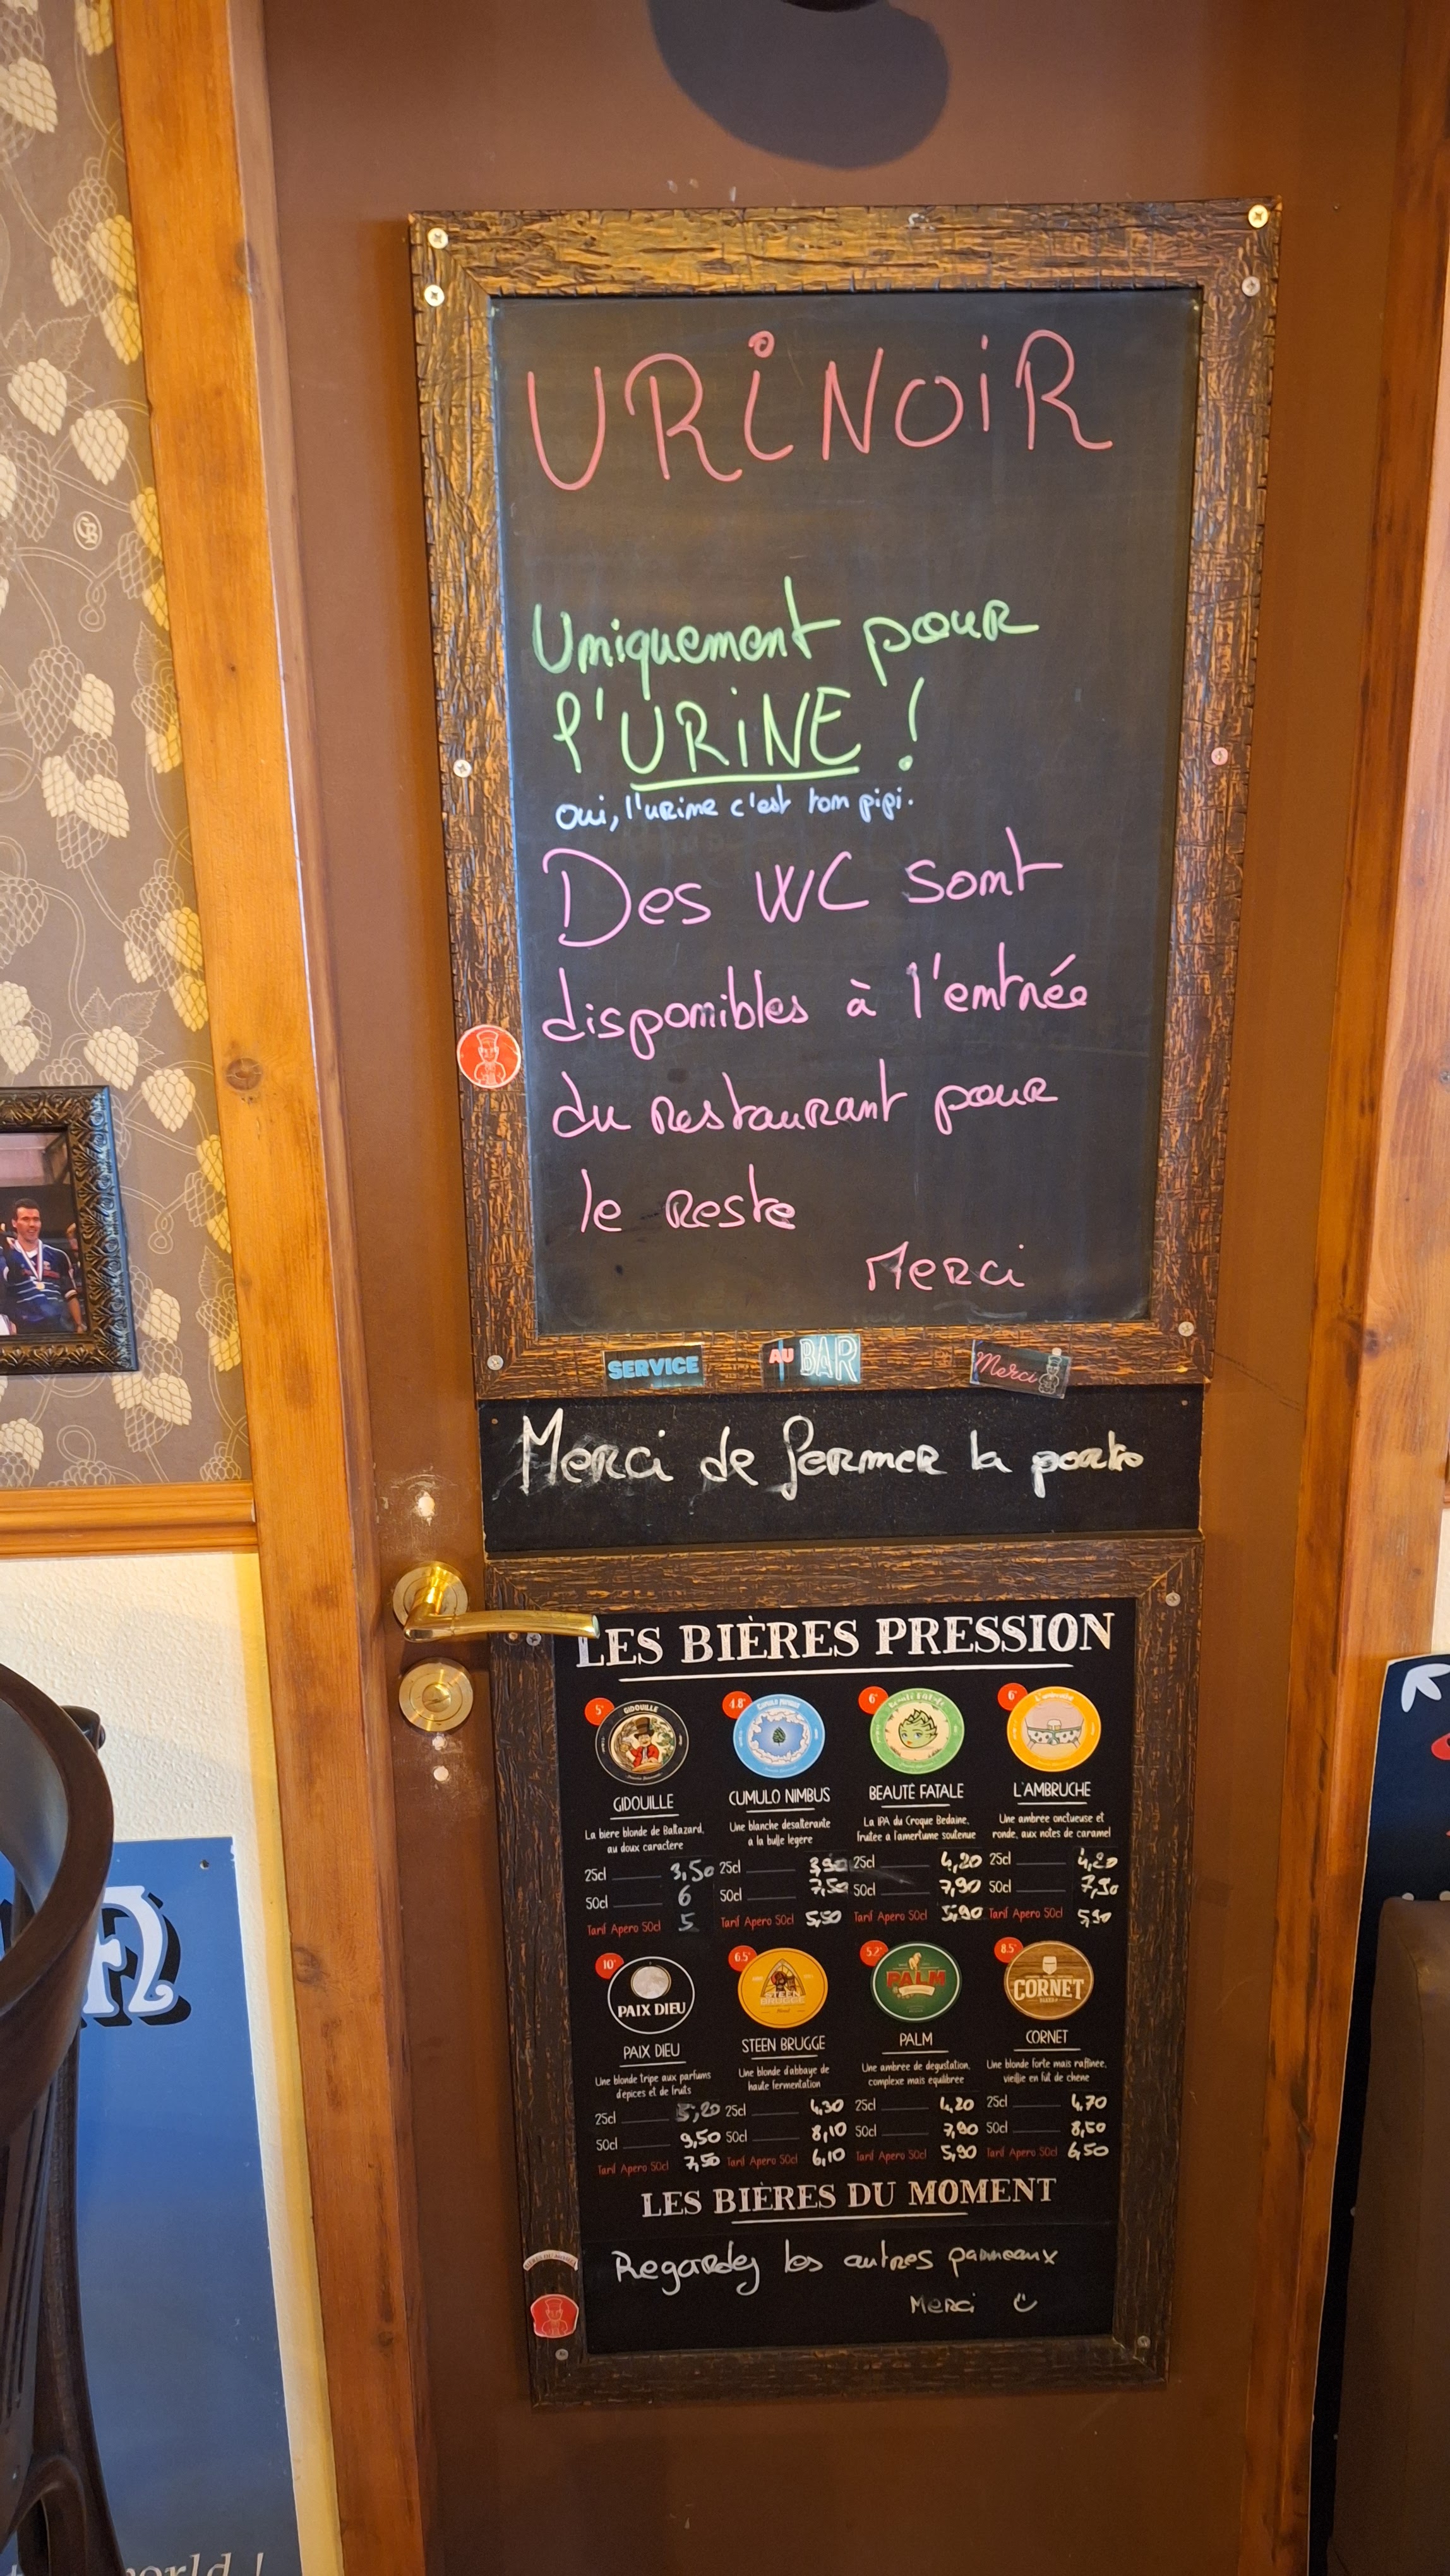 URiNOiR
Uniquement pour
l'URiNE !
oui, l'urine c'est ton pipi.
Des WC sont
disponibles à l'entrée
du restaurant pour
le reste
Merci
SERVICE
AU BAR
Merci
Merci de fermer la porte
LES BIÈRES PRESSION
5° 4.8° 6° 6°
GIDOUILLE CUMULO NIMBUS BEAUTÉ FATALE L'AMBRUCHE
La bière blonde de Baltazard, au doux caractere
Une blanche desalterante à la bulle légère
La IPA du Croque Bedaine, fruitee a l'amertume soutenue
Une ambree onctueuse et ronde, aux notes de caramel
25cl 3,50 25cl 3,90 25cl 4,20 25cl 4,20
50cl 6 50cl 7,50 50cl 7,90 50cl 7,90
Tarif Apero 50cl 5 Tarif Apero 50cl 5,50 Tarif Apero 50cl 5,90 Tarif Apero 50cl 5,90
10° 6.5° 5.2° 8.5°
PAIX DIEU STEEN BRUGGE PALM CORNET
PAIX DIEU STEEN BRUGGE PALM CORNET
Une blonde tripe aux parfums d'epices et de fruits
Une blonde d'abbaye de haute fermentation
Une ambree de degustation, complexe mais equilibree
Une blonde forte mais raffinee, vieillie en fut de chene
25cl 5,20 25cl 4,30 25cl 4,20 25cl 4,70
50cl 9,50 50cl 8,10 50cl 7,90 50cl 8,50
Tarif Apero 50cl 7,50 Tarif Apero 50cl 6,10 Tarif Apero 50cl 5,90 Tarif Apero 50cl 6,50
LES BIÈRES DU MOMENT
Regardez les autres panneaux
Merci